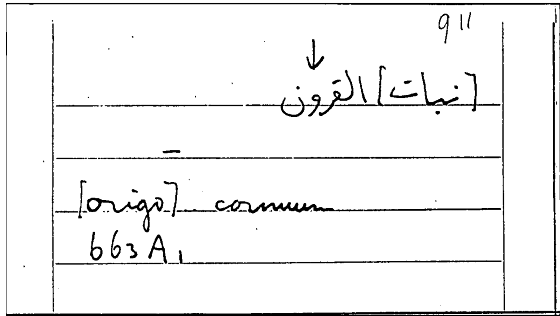 911
↓
[نبات] القرون
–
[origo] cornuum
663A,